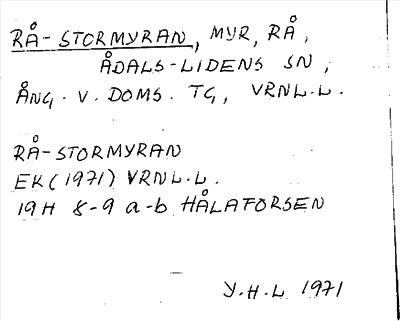 RÅ-STORMYRAN, MYR, RÅ,
ÅDALS-LIDENS SN,
ÅNG. V. DOMS. TG, VRNL.L.
RÅ-STORMYRAN
EK (1971) VRNL.L.
19H 8-9 a-b HÅLAFORSEN
Y.H.L 1971